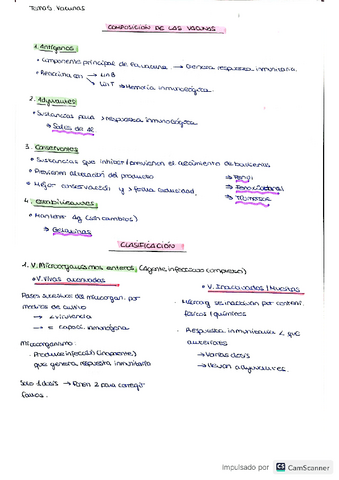 Tema 5 Vacunas
COMPOSICIÓN DE LAS VACUNAS
1. Antígenos
• Componente principal de la vacuna → Genera respuesta inmunitaria.
• Reacciona con → Linf B
→ Linf T → Memoria inmunológica
2. Adyuvantes
• Sustancias para > respuesta inmunológica
⇒ Sales de Al
3. Conservantes
• Sustancias que inhiben / el crecimiento de bacterias
• Previenen alteración del producto
⇒ Fenol
• Mejor conservación y > fecha caducidad
⇒ Fenoxietanol
⇒ Timerosal
4. Estabilizantes
• Mantener Ag (sin cambios)
⇒ Gelatinas
CLASIFICACIÓN
1. V. Microorganismos enteros (Agente infeccioso completo)
• V. Vivas atenuadas
• V. Inactivadas / Muertas
Pases sucesivos del microorgan. por
medios de cultivo
→ < virulencia
→ = capaci. inmunógena
Microorganismo:
• Produce infección (inaparente)
que genera respuesta inmunitaria
Solo 1 dosis → Ponen 2 para corregir
fallos.
• Microorg se inactivan por
físicos / químicos
• Respuesta inmunitaria < que
anteriores
→ Varias dosis
→ Llevan adyuvantes.
Impulsado por CS CamScanner